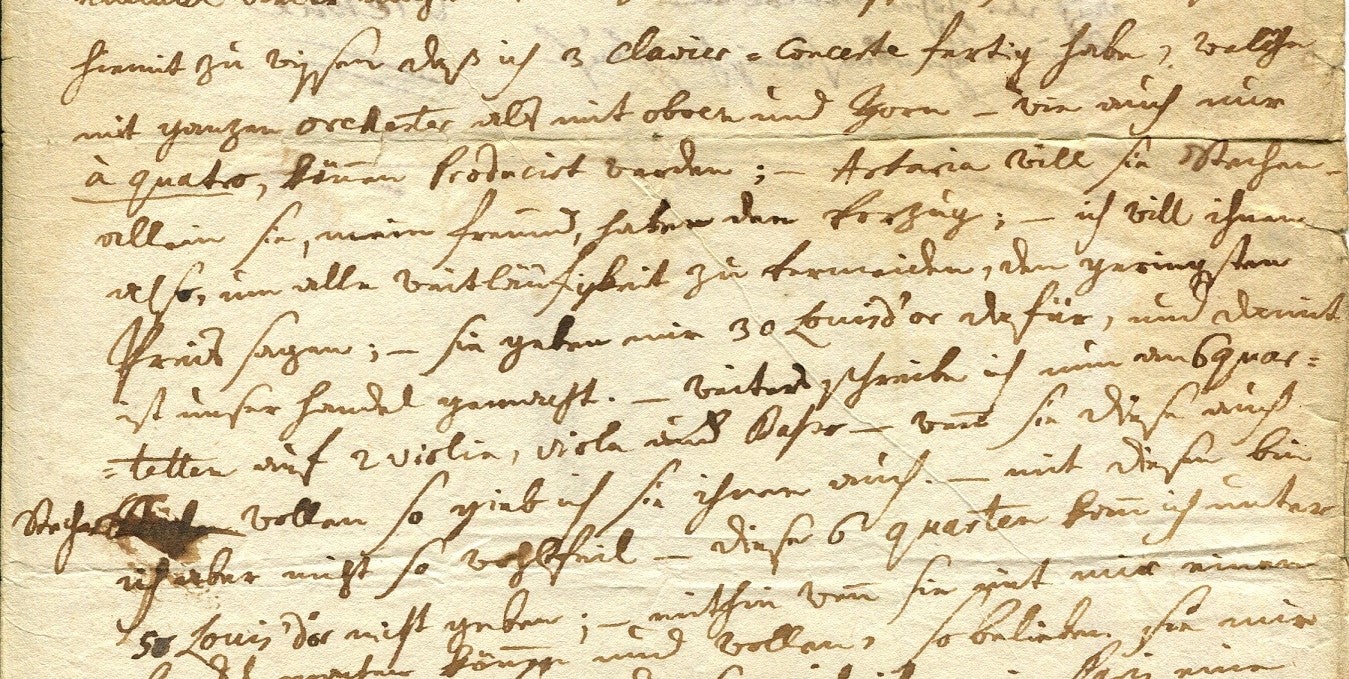 hiemit zu wissen daß ich 3 Clavier=Concerte fertig habe, welche
mit ganzen orchester als mit oboen und Horn – wie auch nur
à quatro, kön̄en Producirt werden; – Artaria will sie Stechen –
allein sie, mein freund, haben den Vorzug; – ich will ihnen
also, um alle weitläufigkeit zu vermeiden, den geringsten
Preis sagen; – sie geben mir 30 Louisd'or dafür, und damit
ist unser handel gemacht. – weiters schreibe ich nun an 6 quar=
=tetten auf 2 violin, viola und Basso – wen̄ sie diese auch
Stechen wollen so gieb ich sie ihnen auch. – mit diesen bin
ich aber nicht so wohlfeil – diese 6 quartten kan̄ ich unter
50 Louis'd'or nicht geben; – mithin wen̄ sie mit mir einen
machen kön̄en und wollen, so belieben sie mir